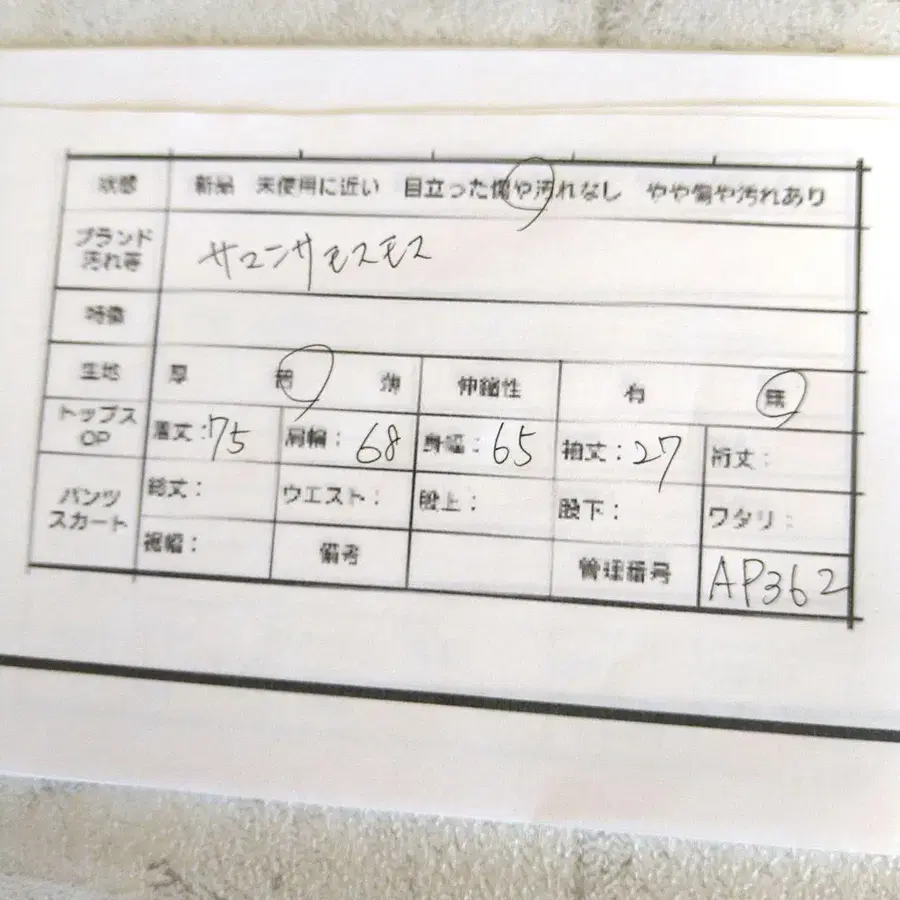 状態 新品 未使用に近い 目立った傷や汚れなし やや傷や汚れあり
ブランド
汚れ等
サマンサモスモス
特徴
生地 厚 普 薄 伸縮性 有 無
トップス
OP
着丈：75 肩幅：68 身幅：65 袖丈：27 裄丈：
パンツ
スカート
総丈： ウエスト： 股上： 股下： ワタリ：
裾幅： 備考 管理番号 AP362